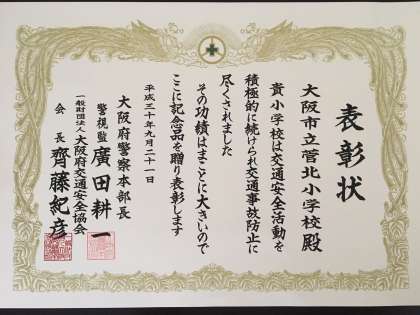 表彰状
大阪市立菅北小学校殿
貴小学校は交通安全活動を
積極的に続けられ交通事故防止に
尽くされました
その功績はまことに大きいので
ここに記念品を贈り表彰します
平成三十年九月二十一日
大阪府警察本部長
警視監 廣田耕一
一般財団法人大阪府交通安全協会
会長 齊藤紀彦